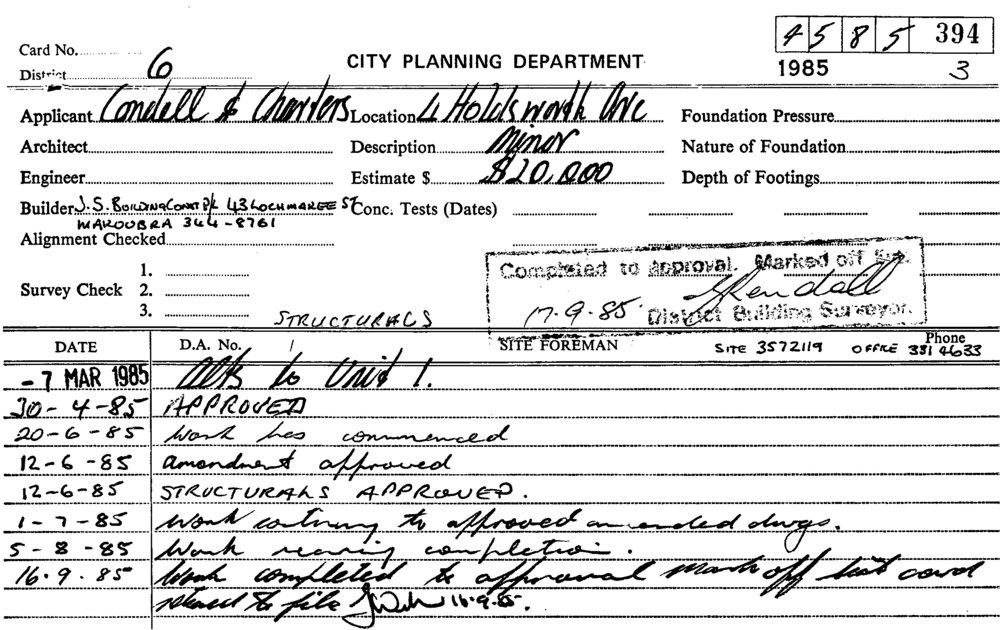 4585 394
Card No.
CITY PLANNING DEPARTMENT
District 6
1985 3
Applicant Condell & Charters Location 4 Holdsworth Ave Foundation Pressure
Architect Description Minor Nature of Foundation
Engineer Estimate $ $20,000 Depth of Footings
Builder J.S. BUILDING CONST P/L 43 LOCHMAREE ST Conc. Tests (Dates)
MAROUBRA 344-8761
Alignment Checked
Completed to approval. Marked off
1.
Survey Check 2.
17-9-85 District Building Surveyor.
3.
STRUCTURALS
DATE D.A. No. SITE FOREMAN SITE 3572119 OFFICE Phone 331 4633
-7 MAR 1985 Alts to Unit 1.
30-4-85 APPROVED
20-6-85 Work has commenced
12-6-85 amendment approved
12-6-85 STRUCTURALS APPROVED.
1-7-85 Work to approved amended dwgs.
5-8-85 Work nearing completion.
16.9.85 Work completed to approval mark off list card
to file 16-9-85.